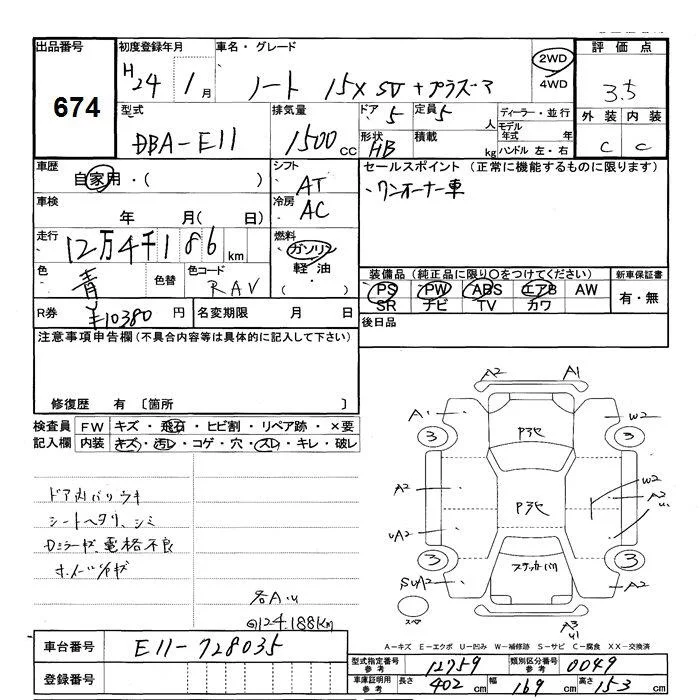 出品番号
674
初度登録年月
H 24年 1月
車名・グレード
ノート 15X SV +プラズーマ
2WD
4WD
評価点
3.5
外装 内装
C C
型式
DBA-E11
排気量
1500 cc
ドア 5
定員 5 人
形状 HB
積載 kg
ディーラー・並行
モデル年式 年
ハンドル 左・右
車歴
自家用・( )
シフト
AT
セールスポイント (正常に機能するものに限ります)
・ワンオーナー車
車検
年 月( 日)
冷房
AC
走行
12万4千186 km
燃料
ガソリン
軽油・
( )
色
青
色替
色コード
RAV
装備品 (純正品に限り○をつけてください)
PS PW ABS エアB AW
SR ナビ TV カワ
新車保証書
有・無
R券
¥10380 円
名変期限 月 日
後日品
注意事項申告欄 (不具合内容等は具体的に記入して下さい)
修復歴 有 〔箇所 〕
検査員記入欄
FW キズ・飛石・ヒビ割・リペア跡・×要
内装 キズ・汚レ・コゲ・穴・スレ・キレ・破レ
ドア内バリウキ
シートヘタリ、シミ
Dミラーキズ、電格不良
ホイールキズ
各A.u
@124.188km
A2 A1
A1 W2
3 P3化 3
A2 P3化 W2
A3
u1
uA2
3 3
SuA2 A2
スペア
A3
u1
A-キズ E-エクボ U-凹み W-補修跡 S-サビ C-腐食 XX-交換済
車台番号
E11-728035
登録番号
型式指定番号 参考 12759
類別区分番号 参考 0049
車庫証明用 参考 長さ 402 cm 幅 169 cm 高さ 153 cm